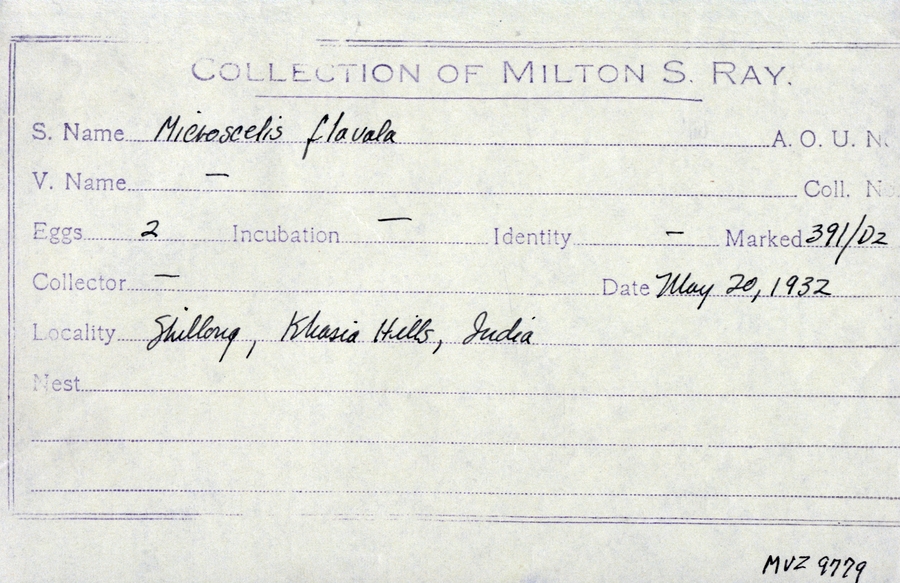 COLLECTION OF MILTON S. RAY.
S. Name Microscelis flavala A. O. U. N.
V. Name — Coll. No.
Eggs 2 Incubation — Identity — Marked 391/02
Collector — Date May 20, 1932
Locality Shillong, Khasia Hills, India
Nest
MVZ 9779